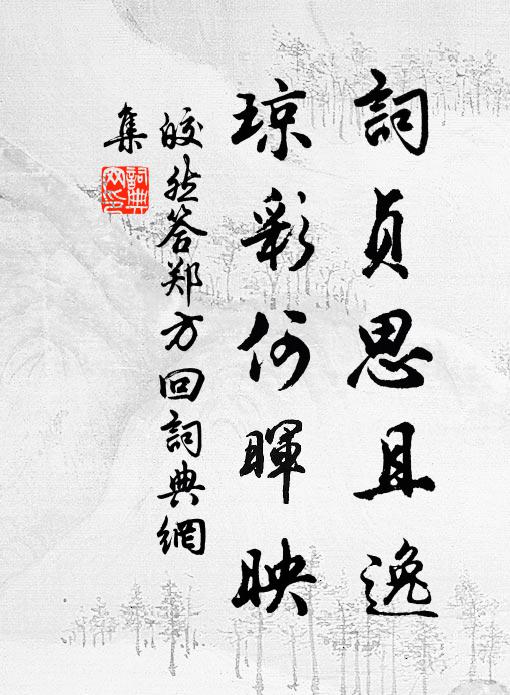 詞貞思且逸
琼彩何暉映
皎然答郑方回詞典網
集
詞典網印